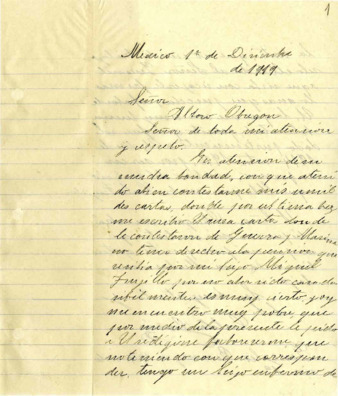 1
Mexico 1º de Diciembre
de 1919
Señor
Alvaro Obregon
Señor de toda mi atencion
y respeto.
En atencion de su
mucha bondad, con que aten
do a bien contestarme mis humil
des cartas, donde por ultima bes
me escribio Una carta don de
le contestaron de Guerra y Marina
no tener derecho a la pencion que
resibia por mi hijo Miguel
Trujillo por eso aber sido casado
sibil mente es muy sierto, y oy
me encuentro muy pobre, que
por medio de la presente le pido
a U se digne faboreserme pues
no teniendo con que correspon
der, tengo un hijo enfermo de